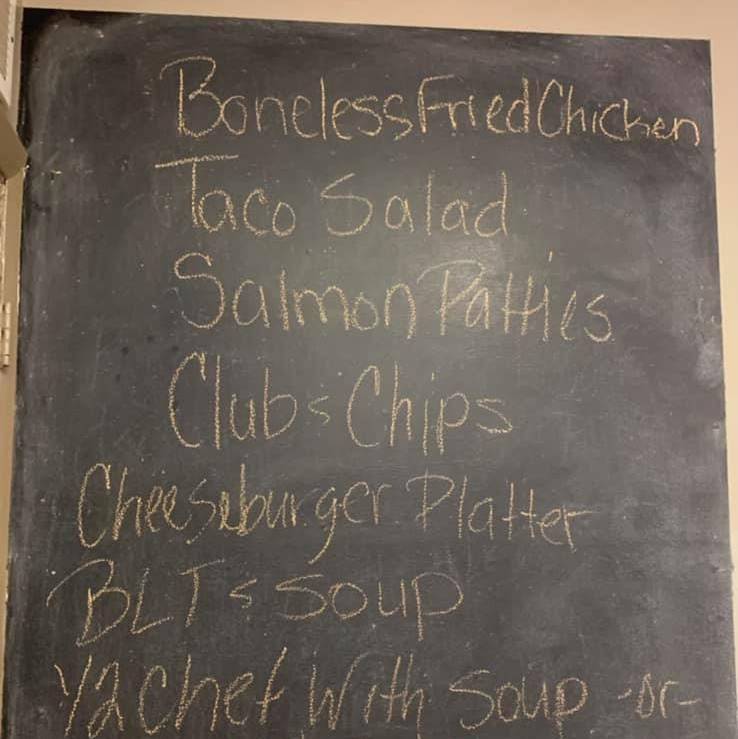 Boneless Fried Chicken
Taco Salad
Salmon Patties
Club & Chips
Cheeseburger Platter
BLT & Soup
1/2 Chef With Soup -or-